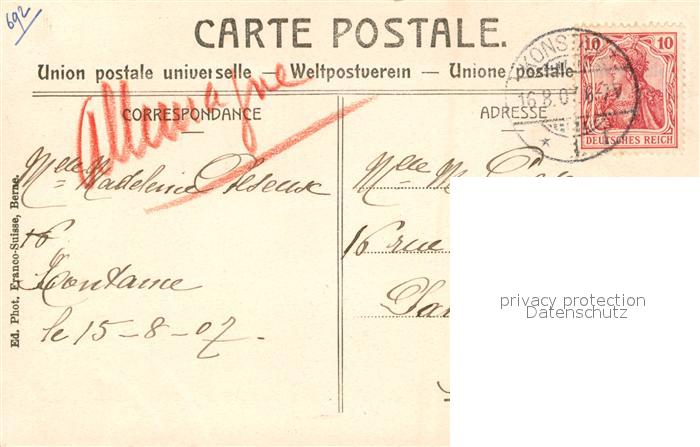 692
CARTE POSTALE.
Union postale universelle — Weltpostverein — Unione postale
Allemagne
CORRESPONDANCE
ADRESSE
KONST
16.8.07.
10 10
DEUTSCHES REICH
Mlle Madeleine
16
le 15-8-07.
Mlle M.
16 rue
Ed. Phot. Franco-Suisse, Berne.
privacy protection
Datenschutz